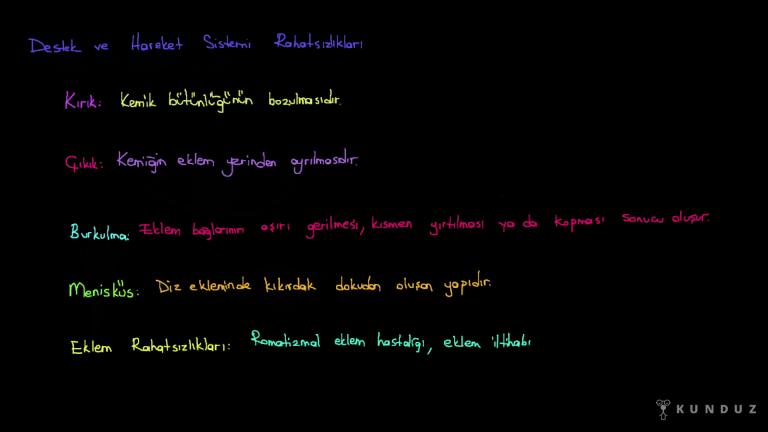 Destek ve Hareket Sistemi Rahatsızlıkları
Kırık: Kemik bütünlüğünün bozulmasıdır.
Çıkık: Kemiğin eklem yerinden ayrılmasıdır.
Burkulma: Eklem bağlarının aşırı gerilmesi, kısmen yırtılması ya da kopması sonucu oluşur.
Menisküs: Diz ekleminde kıkırdak dokudan oluşan yapıdır.
Eklem Rahatsızlıkları: Romatizmal eklem hastalığı, eklem iltihabı
KUNDUZ